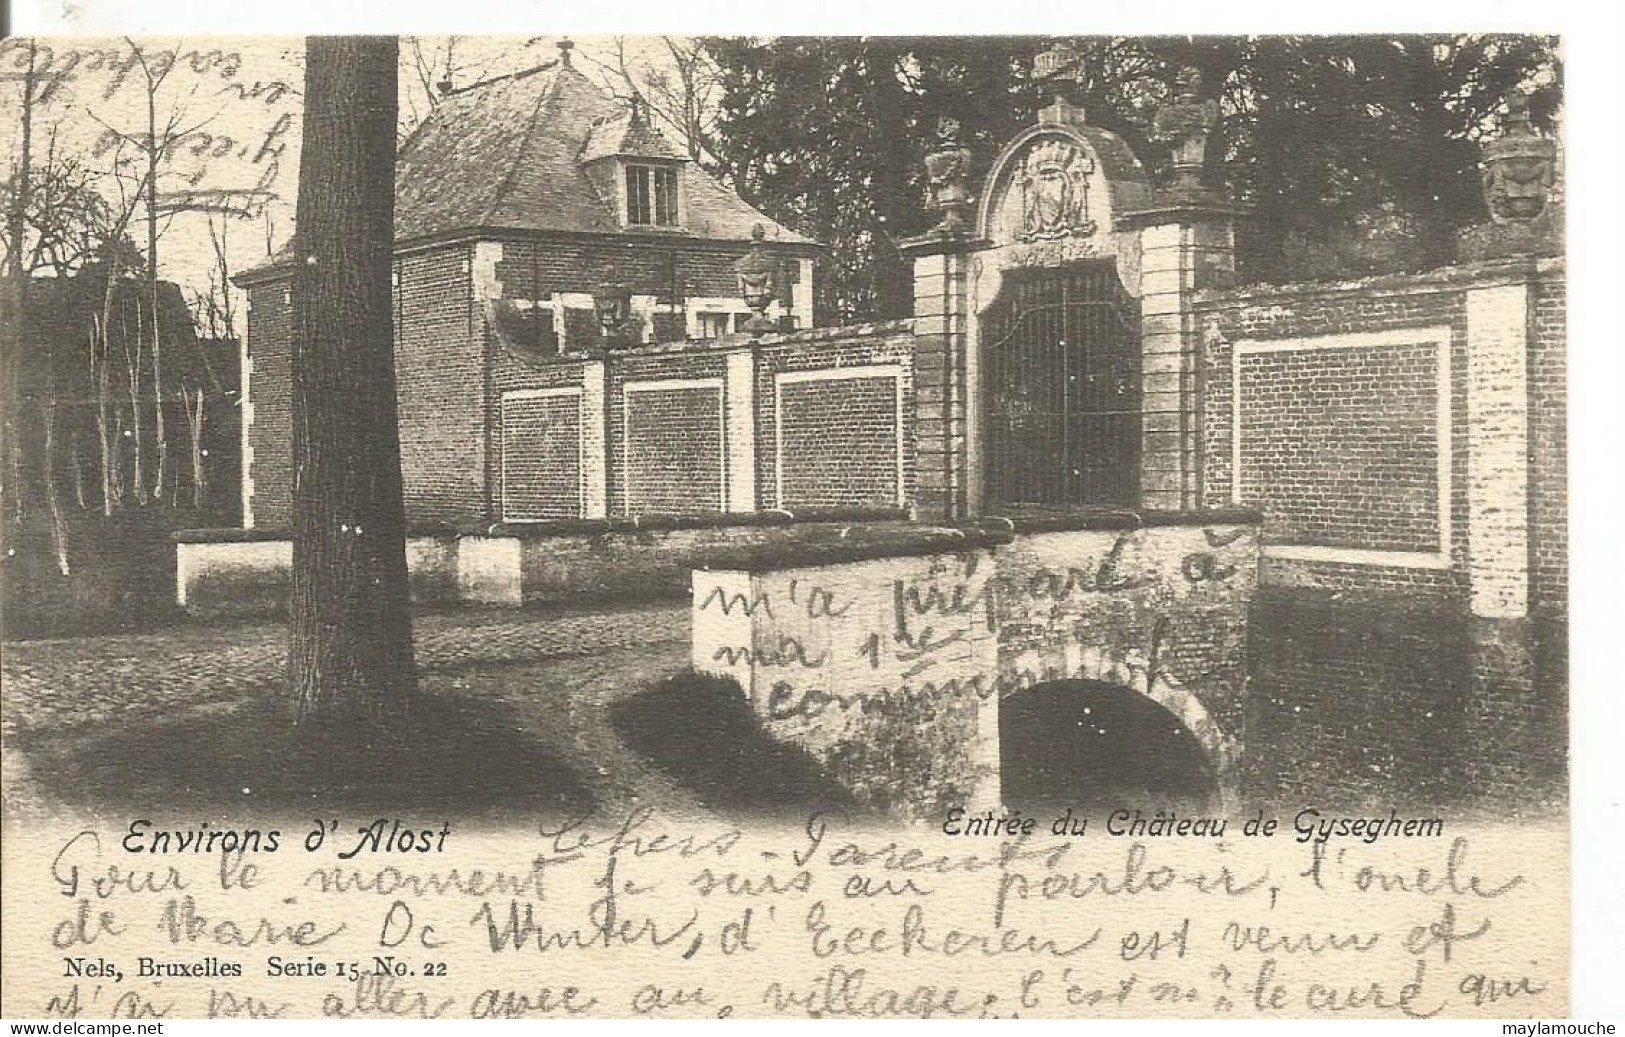 Environs d'Alost
Entrée du Château de Gyseghem
Chers Parents
Pour le moment je suis au parloir, l'oncle
de Marie De Winter, d'Eeckeren est venu et
Nels, Bruxelles Serie 15 No. 22
j'ai pu aller avec au village, c'est le curé qui
m'a préparé à
ma 1re
communion
en
maylamouche